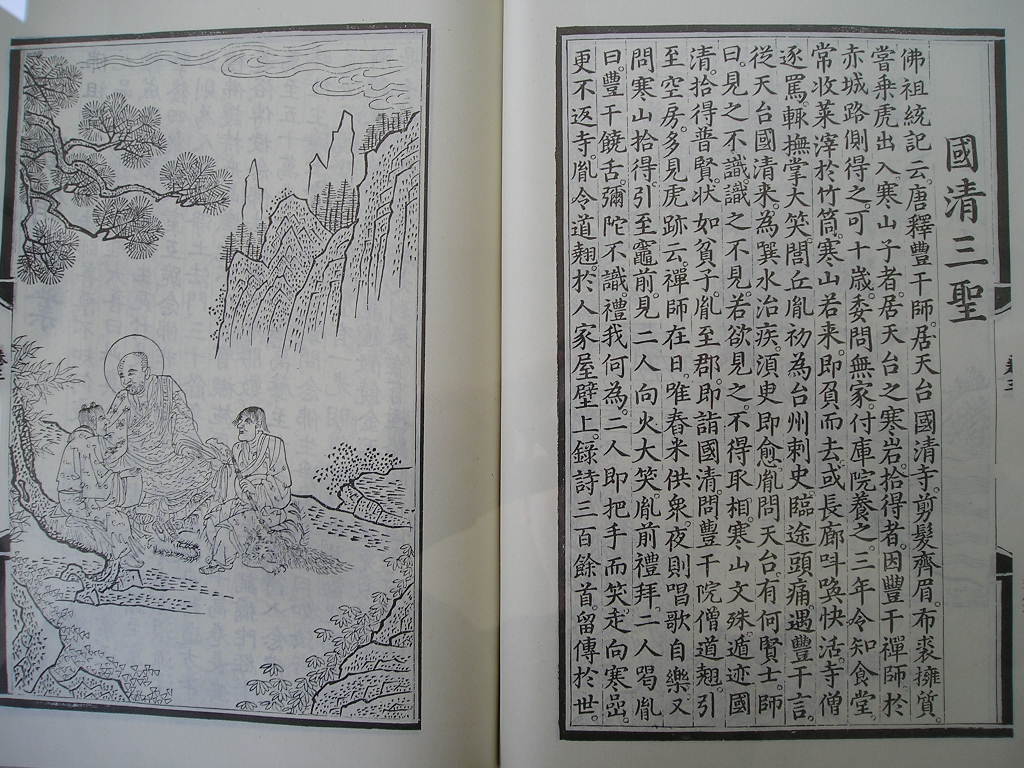 國清三聖
佛祖統記云唐釋豐干師居天台國清寺剪髮齊眉布裘擁質
嘗乘虎出入寒山子者居天台之寒岩拾得者因豐干禪師於
赤城路側得之可十歲委問無家付庫院養之三年令知食堂
常收菜滓於竹筒寒山若來即負而去或長廊叫喚快活寺僧
逐罵輒撫掌大笑閭丘胤初為台州刺史臨途頭痛遇豐干言
從天台國清來為噀水治疾須臾即愈胤問天台有何賢士師
曰見之不識識之不見若欲見之不得取相寒山文殊遁迹國
清拾得普賢狀如貧子胤至郡即詣國清問豐干院僧道翹引
至空房多見虎跡云禪師在日唯舂米供眾夜則唱歌自樂又
問寒山拾得引至竈前見二人向火大笑胤前禮拜二人喝胤
曰豐干饒舌彌陀不識禮我何為二人即把手而笑走向寒嵒
更不返寺胤令道翹於人家屋壁上錄詩三百餘首留傳於世
卷三